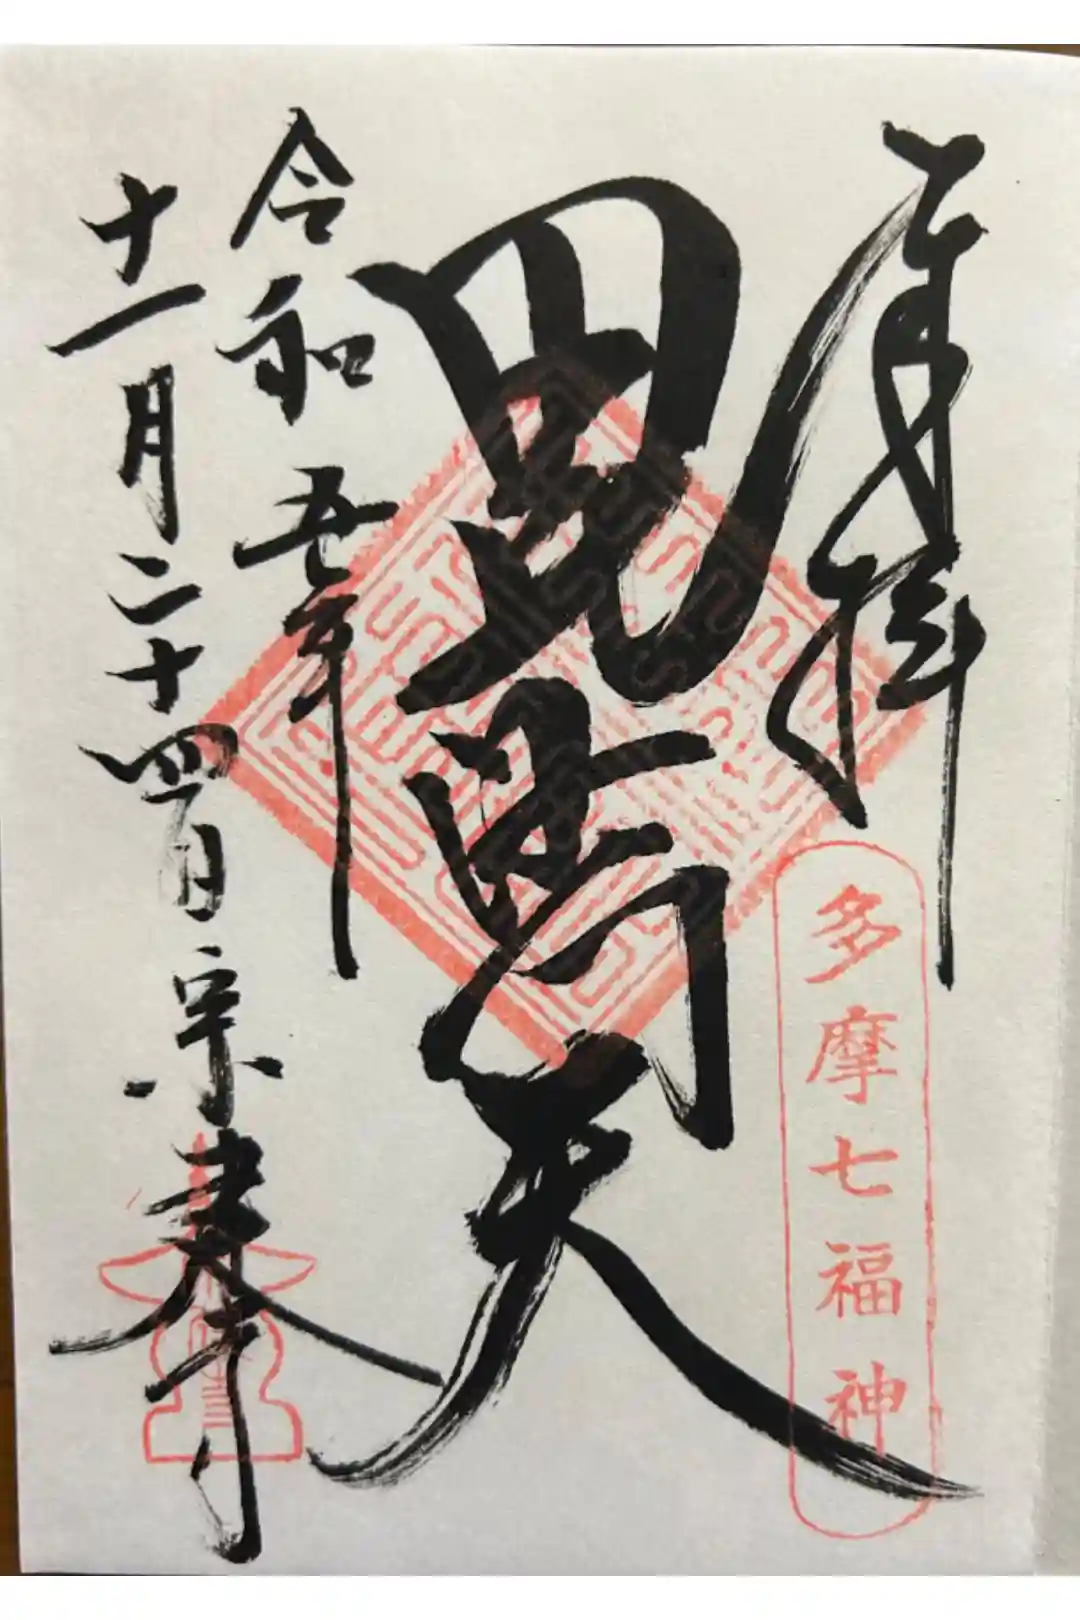 虔拝
毘沙門天
多摩七福神
令和五年
十一月二十四日 宗建寺